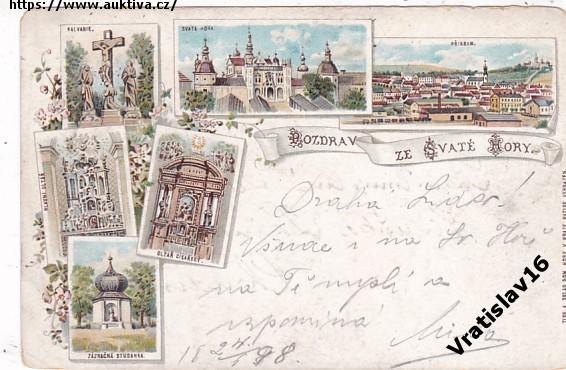 https://www.auktiva.cz/
KALVARIE.
SVATÁ HORA
PŘÍBRAM.
POZDRAV ZE SVATÉ HORY.
HLAVNÍ OLTÁŘ
OLTÁŘ CÍSAŘSKÝ.
ZÁZRAČNÁ STUDÁNKA.
Drahá
i na Sv. Hoře
na Tě myslí a
vzpomíná
18 24/4 98.
Vratislav16